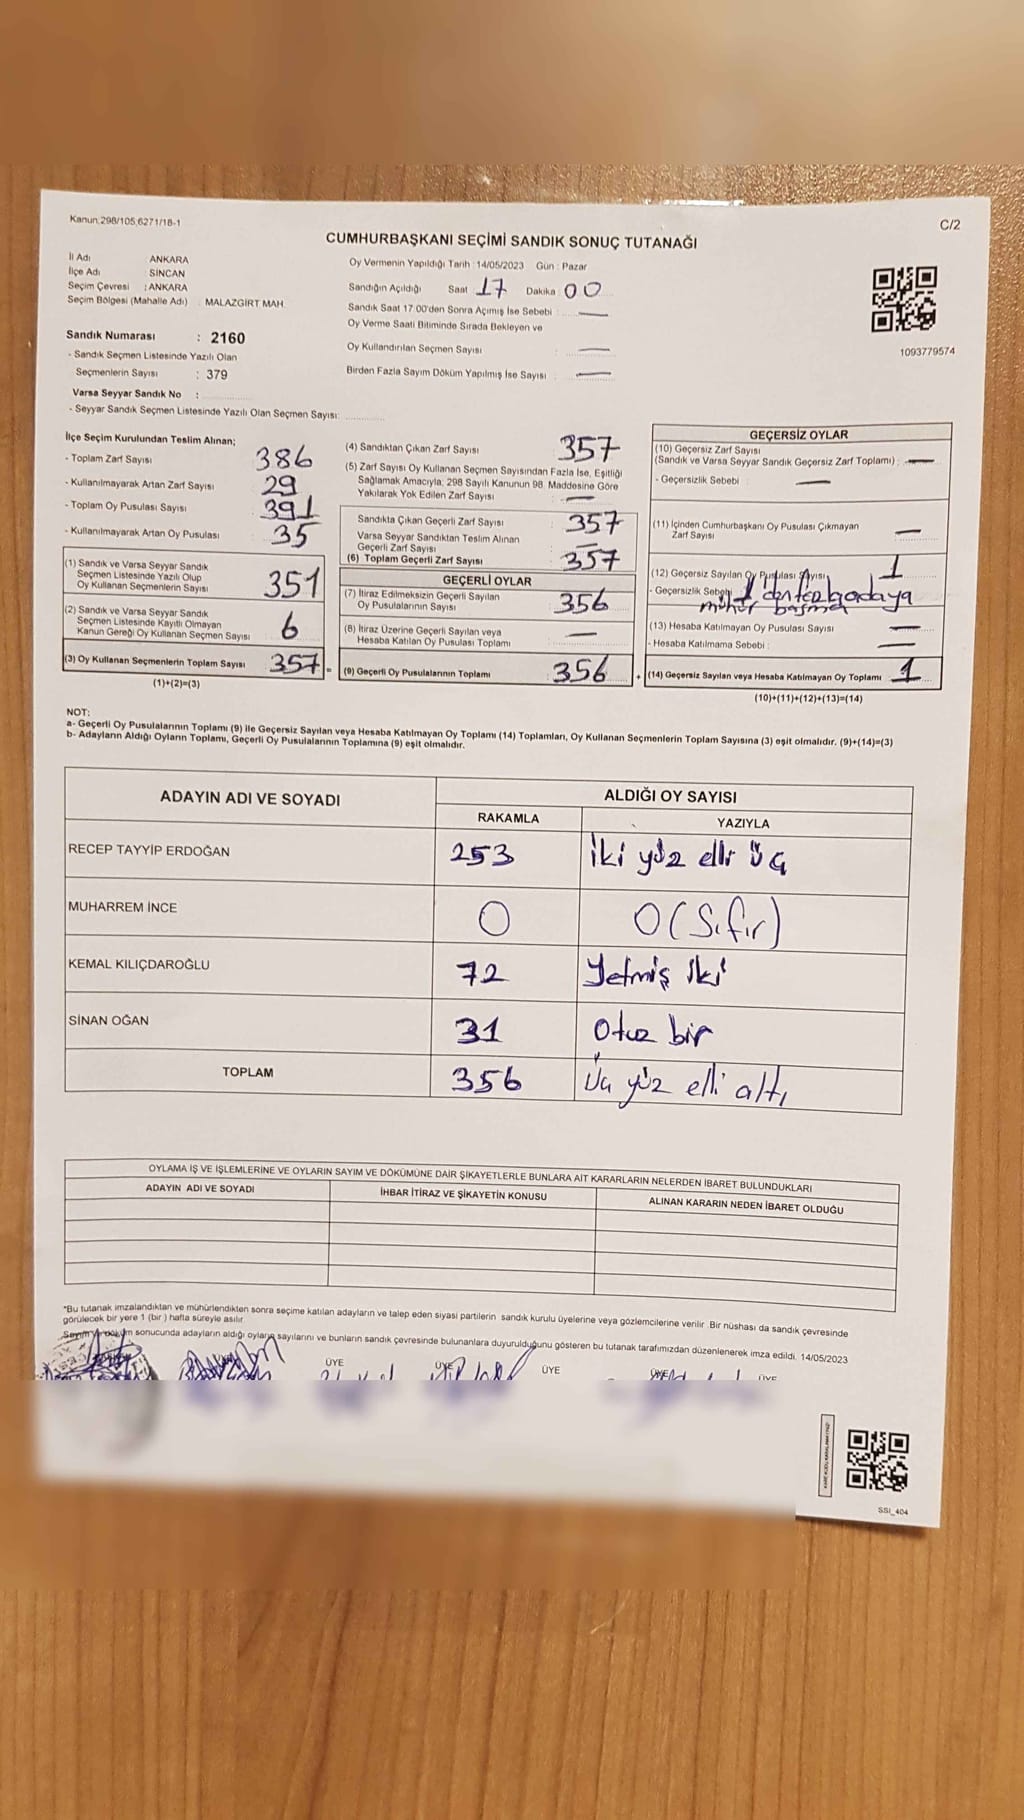 Kanun;298/105,6271/18-1
C/2
CUMHURBAŞKANI SEÇİMİ SANDIK SONUÇ TUTANAĞI
İl Adı ANKARA
İlçe Adı : SİNCAN
Seçim Çevresi : ANKARA
Seçim Bölgesi (Mahalle Adı) : MALAZGİRT MAH
Oy Vermenin Yapıldığı Tarih : 14/05/2023 Gün : Pazar
Sandığın Açıldığı Saat 17 Dakika 00
Sandık Saat 17:00'den Sonra Açımış İse Sebebi : —
Oy Verme Saati Bitiminde Sırada Bekleyen ve
Oy Kullandırılan Seçmen Sayısı : —
Birden Fazla Sayım Döküm Yapılmış İse Sayısı : —
1093779574
Sandık Numarası : 2160
- Sandık Seçmen Listesinde Yazılı Olan
Seçmenlerin Sayısı : 379
Varsa Seyyar Sandık No :
- Seyyar Sandık Seçmen Listesinde Yazılı Olan Seçmen Sayısı:
İlçe Seçim Kurulundan Teslim Alınan;
- Toplam Zarf Sayısı 386
- Kullanılmayarak Artan Zarf Sayısı 29
- Toplam Oy Pusulası Sayısı 391
- Kullanılmayarak Artan Oy Pusulası 35
(1) Sandık ve Varsa Seyyar Sandık
Seçmen Listesinde Yazılı Olup
Oy Kullanan Seçmenlerin Sayısı 351
(2) Sandık ve Varsa Seyyar Sandık
Seçmen Listesinde Kayıtlı Olmayan
Kanun Gereği Oy Kullanan Seçmen Sayısı 6
(3) Oy Kullanan Seçmenlerin Toplam Sayısı 357 =
(1)+(2)=(3)
(4) Sandıktan Çıkan Zarf Sayısı 357
(5) Zarf Sayısı Oy Kullanan Seçmen Sayısından Fazla İse, Eşitliği
Sağlamak Amacıyla; 298 Sayılı Kanunun 98. Maddesine Göre
Yakılarak Yok Edilen Zarf Sayısı —
Sandıkta Çıkan Geçerli Zarf Sayısı 357
Varsa Seyyar Sandıktan Teslim Alınan
Geçerli Zarf Sayısı —
(6) Toplam Geçerli Zarf Sayısı 357
GEÇERLİ OYLAR
(7) İtiraz Edilmeksizin Geçerli Sayılan
Oy Pusulalarının Sayısı 356
(8) İtiraz Üzerine Geçerli Sayılan veya
Hesaba Katılan Oy Pusulası Toplamı —
(9) Geçerli Oy Pusulalarının Toplamı 356 +
GEÇERSİZ OYLAR
(10) Geçersiz Zarf Sayısı
(Sandık ve Varsa Seyyar Sandık Geçersiz Zarf Toplamı) : —
- Geçersizlik Sebebi : —
(11) İçinden Cumhurbaşkanı Oy Pusulası Çıkmayan
Zarf Sayısı —
(12) Geçersiz Sayılan Oy Pusulası Sayısı 1
- Geçersizlik Sebebi 1 den fazla adaya
mühür basma
(13) Hesaba Katılmayan Oy Pusulası Sayısı —
- Hesaba Katılmama Sebebi : —
(14) Geçersiz Sayılan veya Hesaba Katılmayan Oy Toplamı 1
(10)+(11)+(12)+(13)=(14)
NOT:
a- Geçerli Oy Pusulalarının Toplamı (9) ile Geçersiz Sayılan veya Hesaba Katılmayan Oy Toplamı (14) Toplamları, Oy Kullanan Seçmenlerin Toplam Sayısına (3) eşit olmalıdır. (9)+(14)=(3)
b- Adayların Aldığı Oyların Toplamı, Geçerli Oy Pusulalarının Toplamına (9) eşit olmalıdır.
ADAYIN ADI VE SOYADI ALDIĞI OY SAYISI
RAKAMLA YAZIYLA
RECEP TAYYİP ERDOĞAN 253 İki yüz elli üç
MUHARREM İNCE 0 0 (Sıfır)
KEMAL KILIÇDAROĞLU 72 Yetmiş iki
SİNAN OĞAN 31 Otuz bir
TOPLAM 356 Üç yüz elli altı
OYLAMA İŞ VE İŞLEMLERİNE VE OYLARIN SAYIM VE DÖKÜMÜNE DAİR ŞİKAYETLERLE BUNLARA AİT KARARLARIN NELERDEN İBARET BULUNDUKLARI
ADAYIN ADI VE SOYADI İHBAR İTİRAZ VE ŞİKAYETİN KONUSU ALINAN KARARIN NEDEN İBARET OLDUĞU
*Bu tutanak imzalandıktan ve mühürlendikten sonra seçime katılan adayların ve talep eden siyasi partilerin sandık kurulu üyelerine veya gözlemcilerine verilir. Bir nüshası da sandık çevresinde
görülecek bir yere 1 (bir ) hafta süreyle asılır
Sayım ve döküm sonucunda adayların aldığı oyların sayılarını ve bunların sandık çevresinde bulunanlara duyurulduğunu gösteren bu tutanak tarafımızdan düzenlenerek imza edildi. 14/05/2023
ÜYE ÜYE ÜYE ÜYE ÜYE
SSI_404